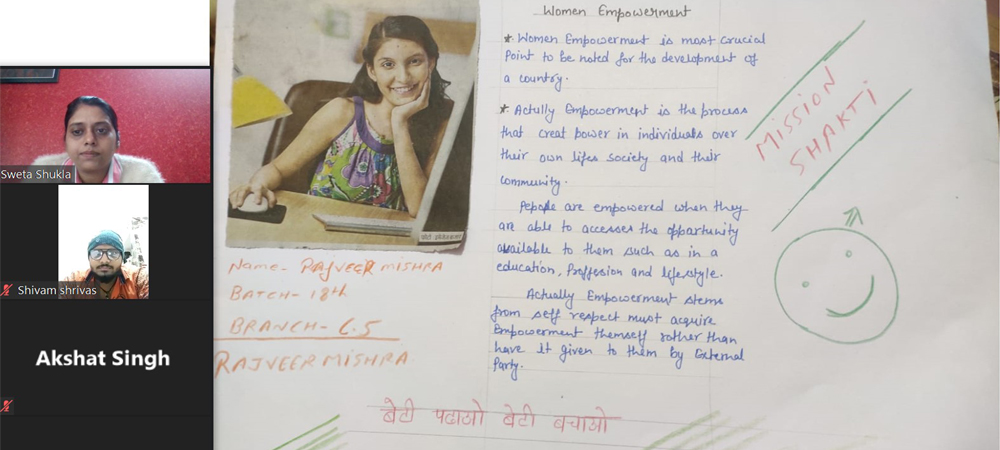 Sweta Shukla
Shivam shrivas
Akshat Singh
Women Empowerment
* Women Empowerment is most crucial
Point to be noted for the development of
a country.
* Actully Empowerment is the process
that creat power in individuals over
their own lifes society and their
community.
People are empowered when they
are able to accesses the opportunity
available to them such as in a
education, Proffesion and lifestyle.
Actually Empowerment stems
from self respect must acquire
Empowerment themself rather than
have It given to them by External
Party.
MISSION
SHAKTI
Name- RAJVEER MISHRA
BATCH- 18th
BRANCH- C.S
RAJVEER MISHRA
बेटी पढाओ बेटी बचाओ